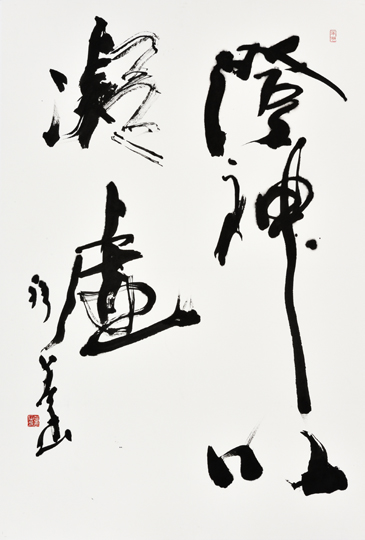 澄神以
凝慮